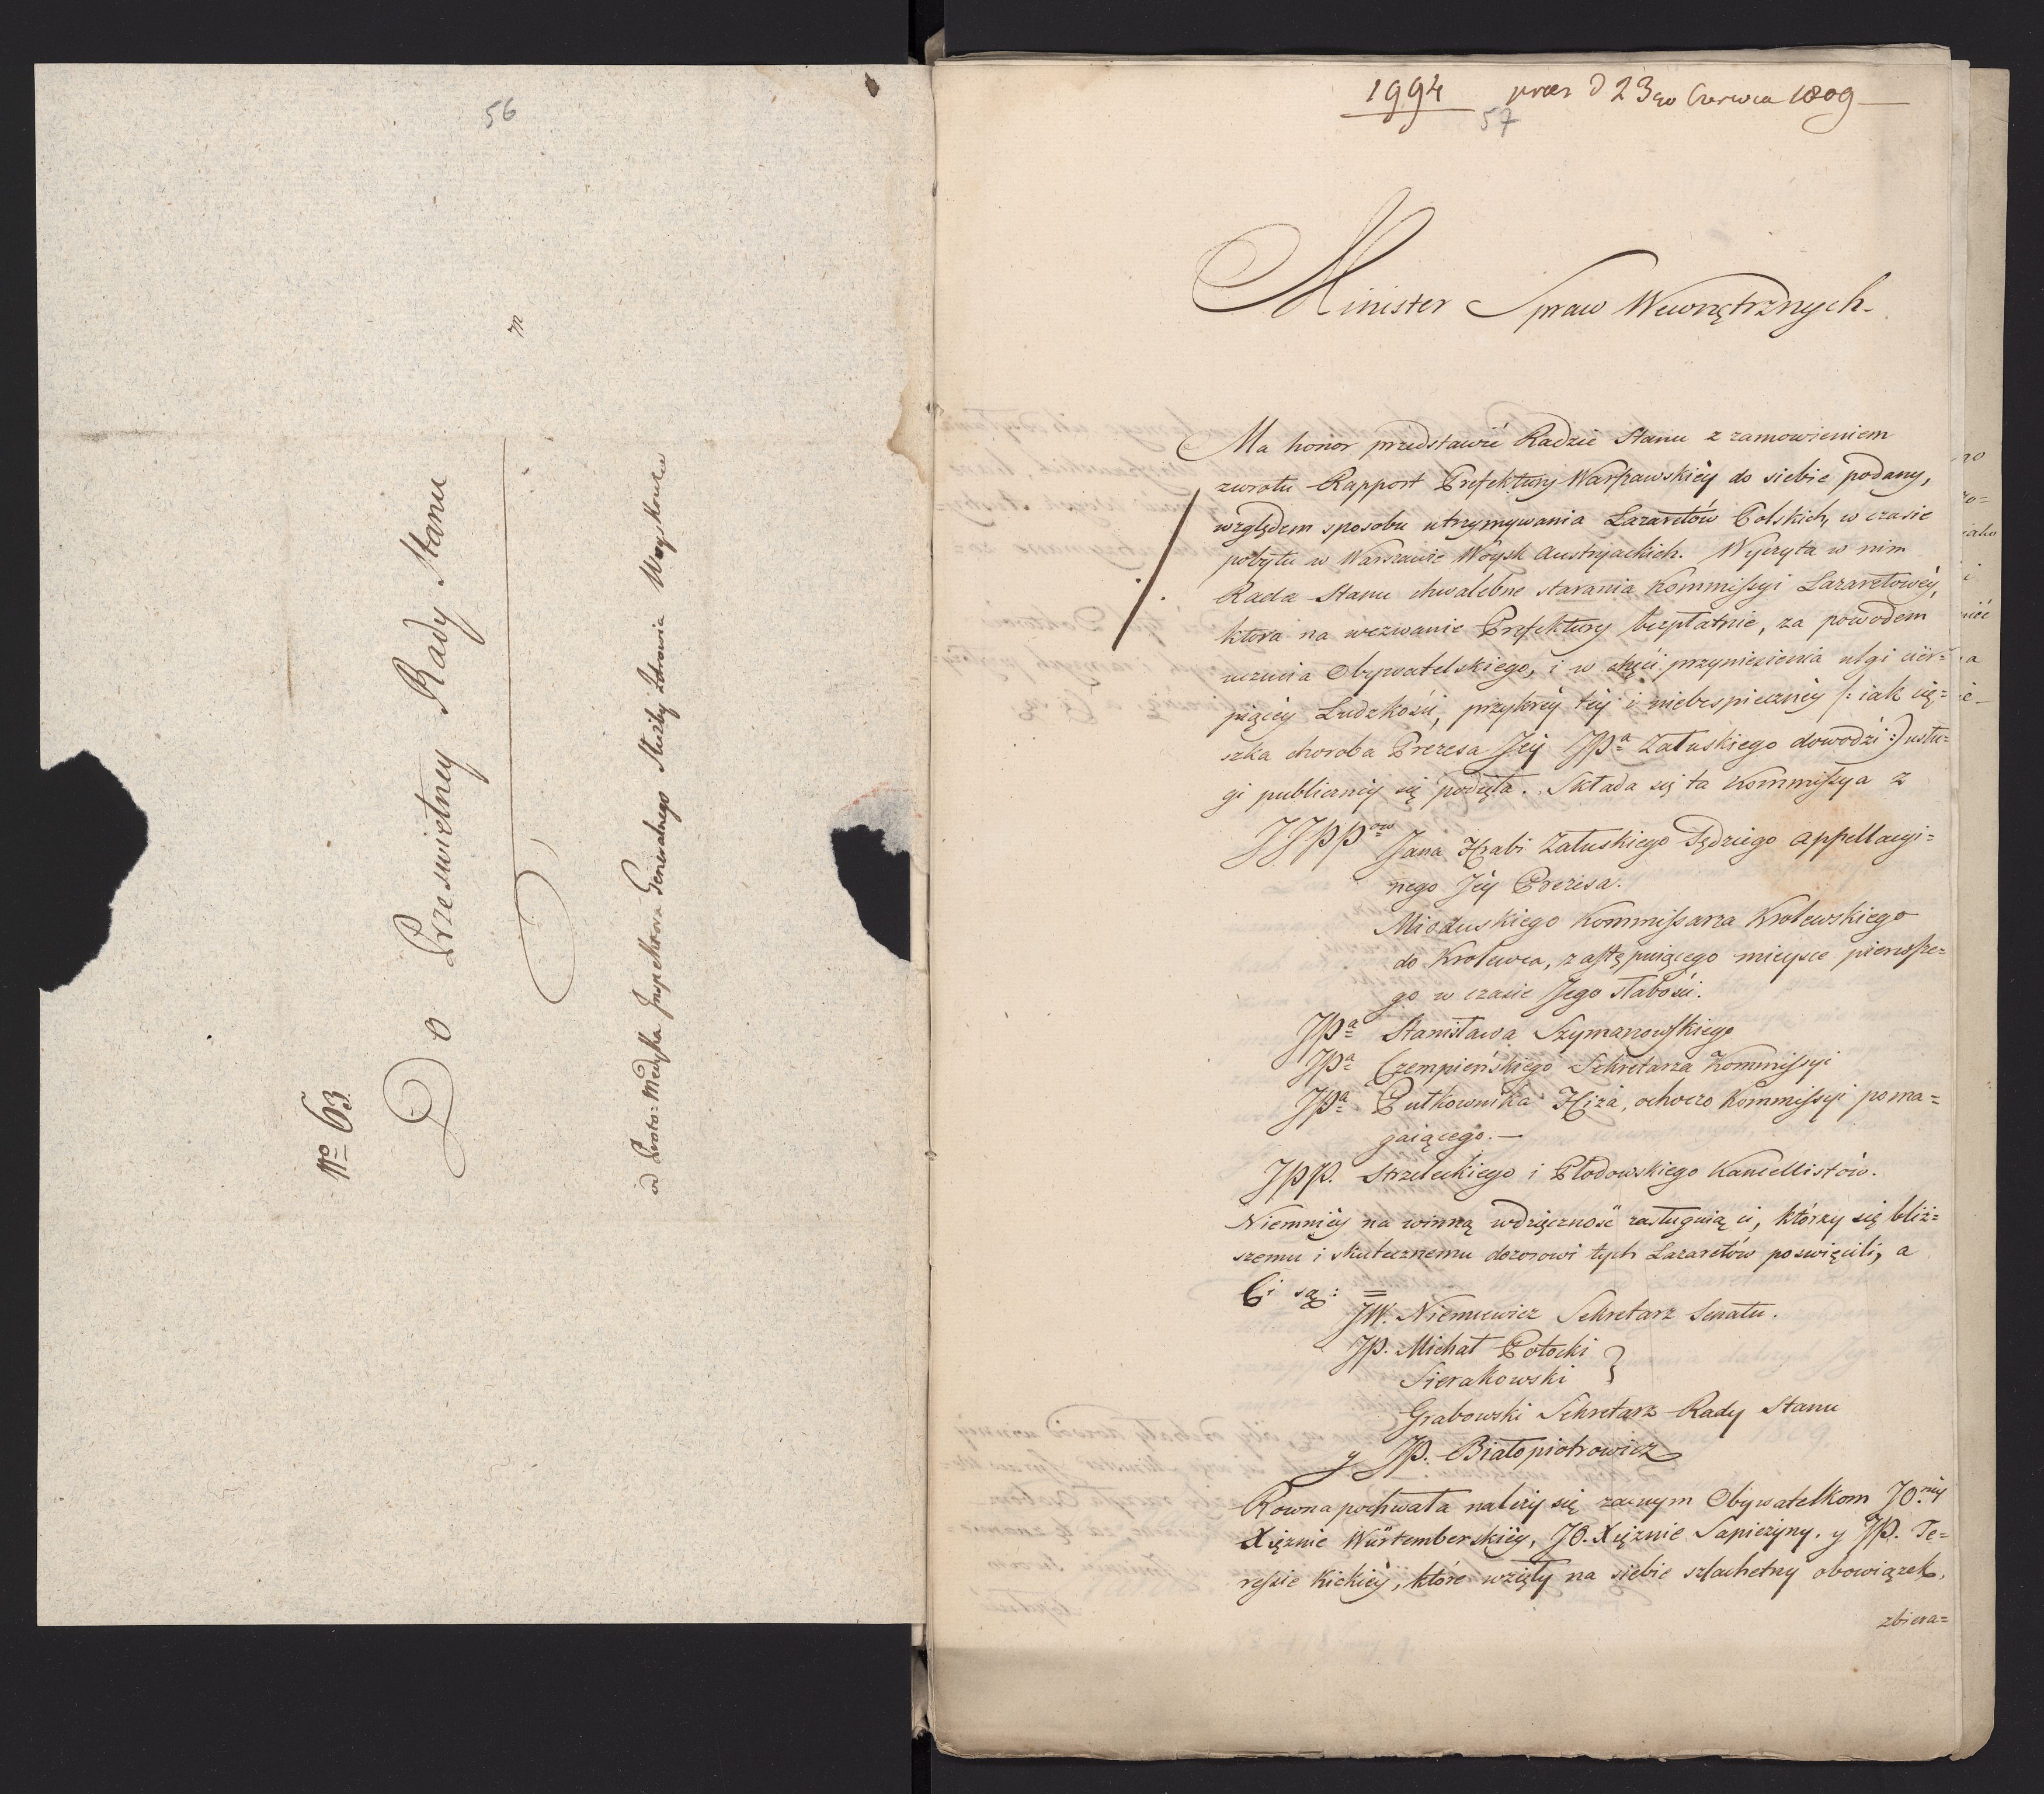 56
No 63.
Do Prześwietney Rady Stanu
od Proto-Medyka Inspektora Generalnego Służby Zdrowia Woyskowey
1994 prez d 23go Czerwca 1809
57
Minister Spraw Wewnętrznych.
Ma honor przedstawić Radzie Stanu z zamowieniem
zwrotu Rapport Prefektury Warszawskiéy do siebie podany,
względem sposobu utrzymywania Lazaretów Polskich, w czasie
pobytu w Warszawie Woysk Austryackich. Wyczyta w nim
Rada Stanu chwalebne starania Kommissyi Lazaretowéy,
ktora na wezwanie Prefektury bezpłatnie, za powodem
uczucia Obywatelskiego, i w chęci przyniesienia ulgi cier=
piącey Ludzkości, przykréy téy i niebespieczney /: iak cię=
szka choroba Prezesa Jéy JPa Załuskiego dowodzi :/ usłu=
gi publiczney się podięła. Składa się ta Kommissya z
JJPPow Jana Hrabi Załuskiego Sędziego Appellacyi=
nego Jéy Prezesa.
Mioduskiego Kommissarza Krolewskiego
do Krolewca, zastępuiącego mieysce pierwsze=
go w czasie Jego słabości.
JPa Stanisława Szymanowskiego
JPa Czempieńskiego Sekretarza Kommissyi
JPa Pułkownika Hiża, ochoczo Kommissyi poma=
gaiącego.—
JPP. Strzeleckiego i Płodowskiego Kancellistów.
Niemniéy na winną wdzięczność zasługuią ci, którzy się bliż=
szemu i skutecznemu dozorowi tych Lazaretów poswięcili, a
Ci są: =
JW. Niemcewicz Sekretarz Senatu.
JP. Michał Potocki }
Sierakowski
Grabowski Sekretarz Rady Stanu
y JP. Białopiotrowicz
Rowna pochwała należy się zacnym Obywatelkom JO.néy
Xiężnie Würtemberskiéy, JO. Xiężnie Sapieżyny. y JP. Te=
ressie Kickiéy, które wzięły na siebie szlachetny obowiązek,
zbiera=